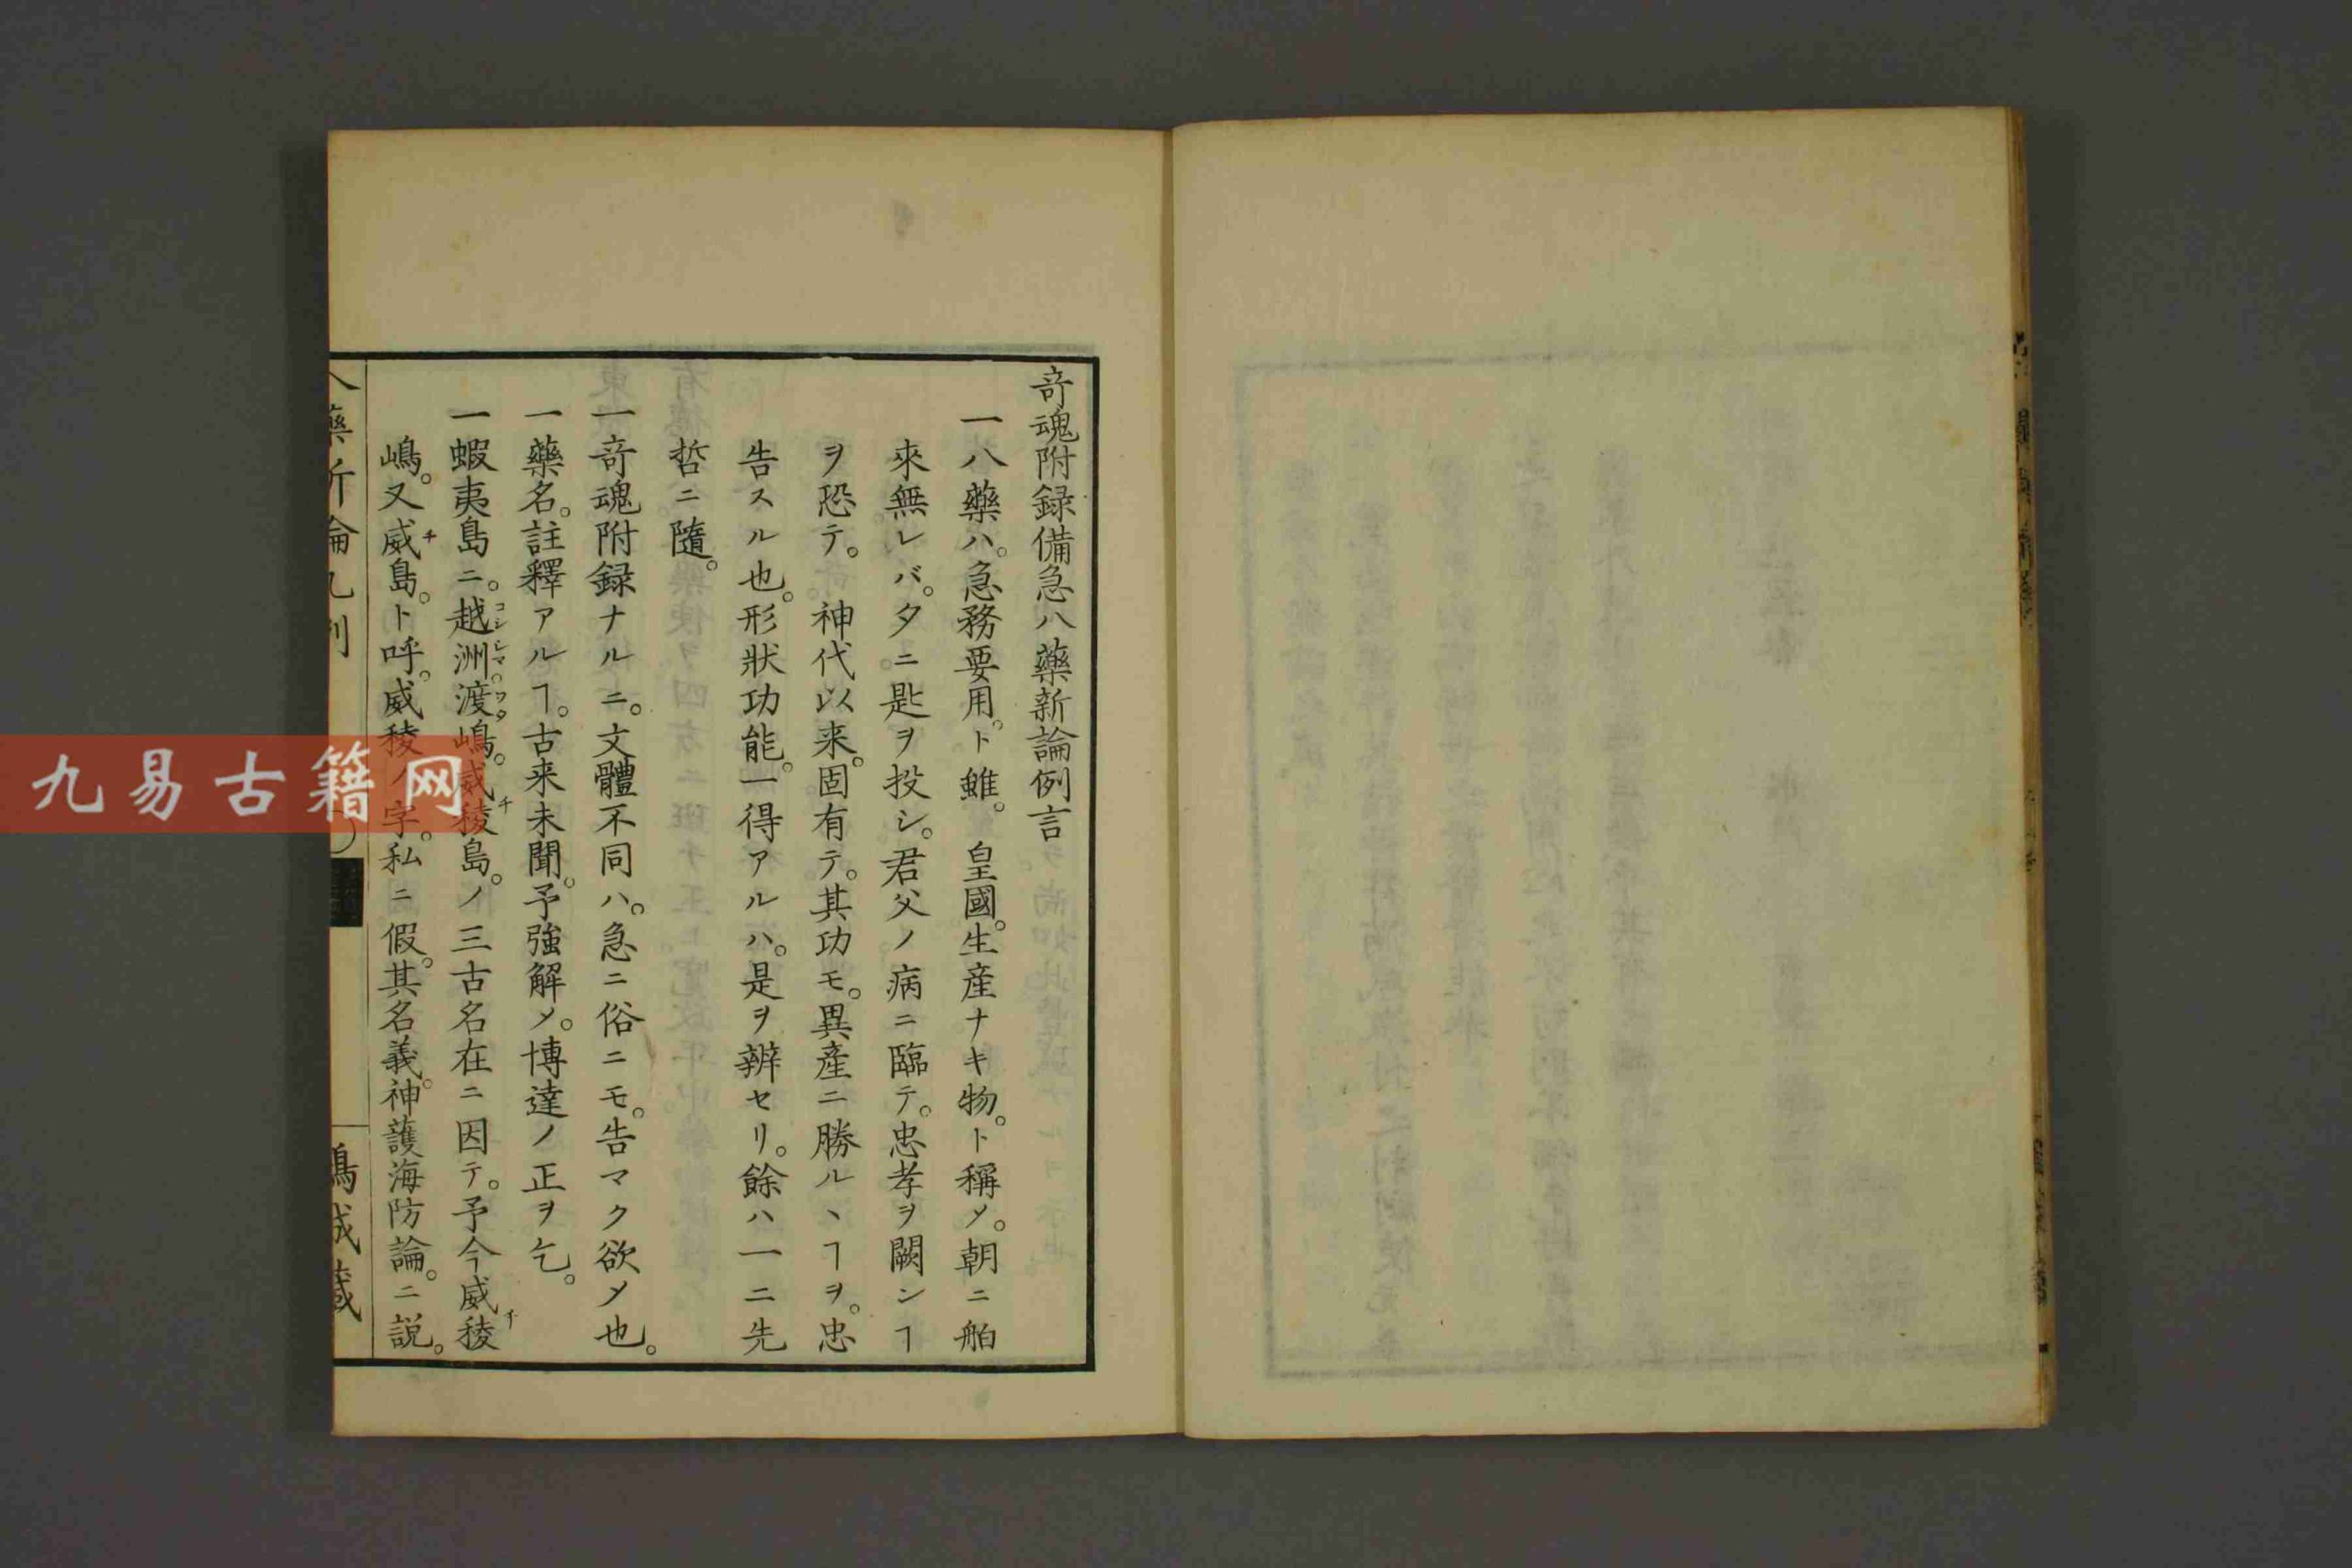 奇魂附録備急八藥新論例言
一八藥ハ。急務要用。ト雖。皇國。生産ナキ物。ト稱メ。朝ニ舶
來無レバ。夕ニ匙ヲ投シ。君父ノ病ニ臨テ。忠孝ヲ闕ンヿ
ヲ恐テ。神代以来。固有テ。其功モ。異産ニ勝ルヽヿヲ。忠
告スル也。形狀功能。一得アルハ。是ヲ辨セリ。餘ハ一ニ先
哲ニ隨。
一奇魂附録ナルニ。文體不同ハ。急ニ俗ニモ。告マク欲メ也。
一藥名。註釋アルヿ。古来未聞。予強解メ。博達ノ正ヲ乞。
一蝦夷島ニ。越洲。渡嶋。威稜島。ノ三古名在ニ因テ。予今威稜
嶋。又威島。ト呼。威稜ノ字。私ニ假。其名義。神護海防論。ニ説。
八藥新論凡例
鳴成藏
九易古籍网